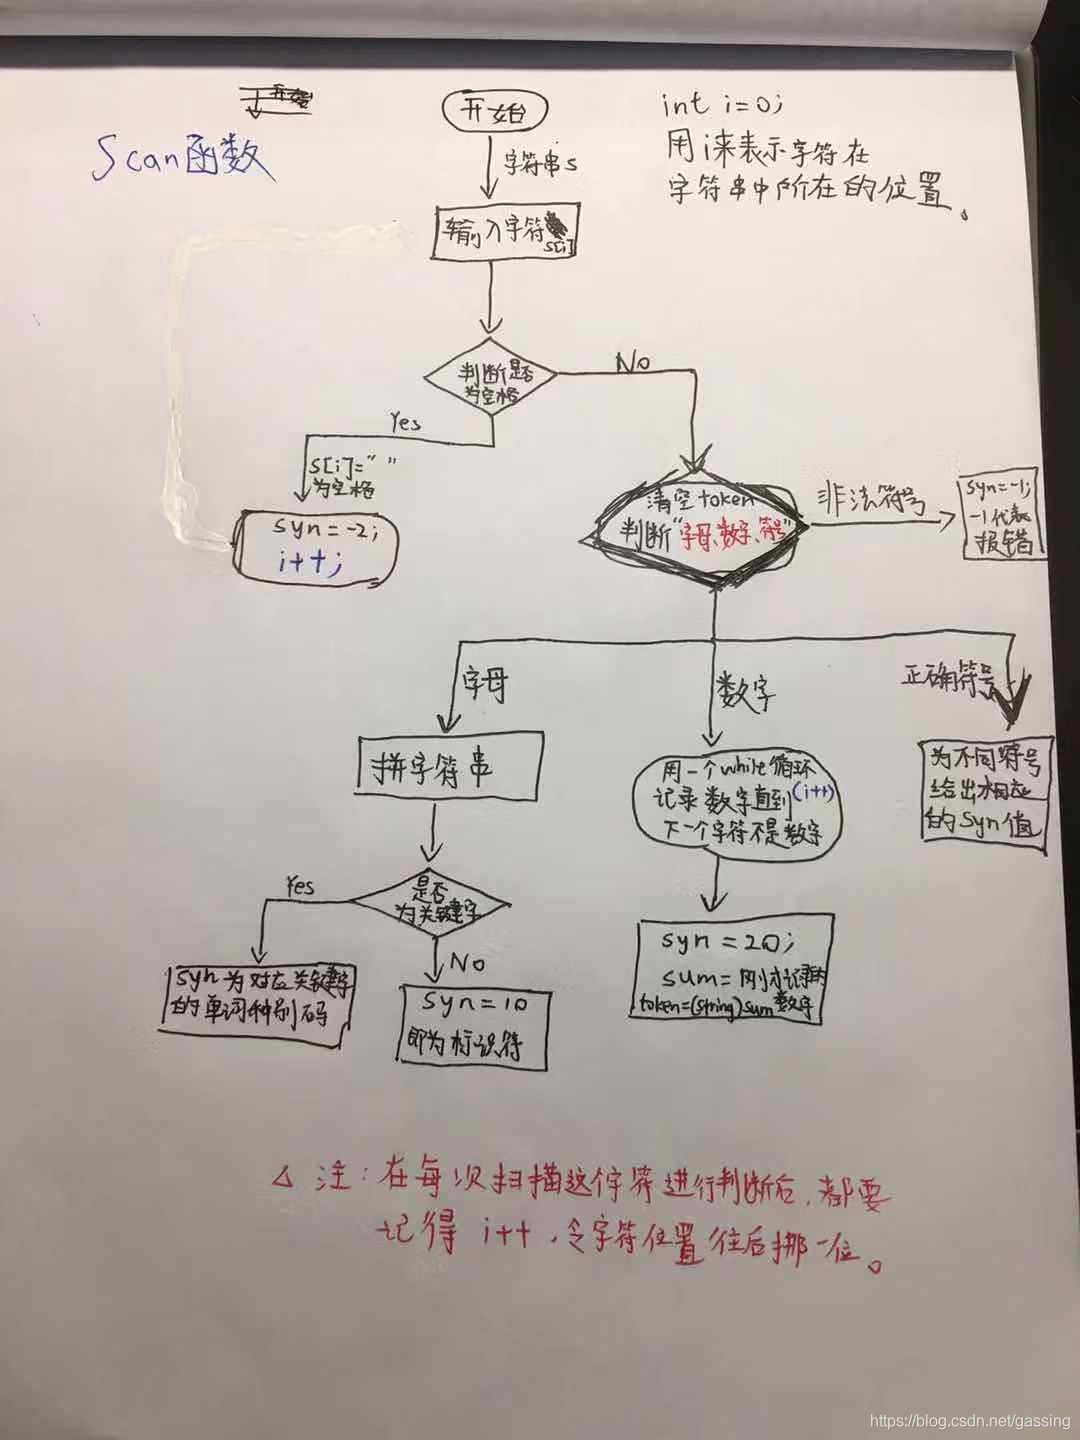 开始
Scan函数
int i=0;
用i来表示字符在
字符串中所在的位置。
字符串s
输入字符
s[i]
判断是否
为空格
No
Yes
s[i]=" "
为空格
syn=-2;
i++;
清空token
判断"字母、数字、符号"
非法符号
syn=-1;
-1代表
报错
字母
数字
正确符号
拼字符串
用一个while循环
记录数字直到(i++)
下一个字符不是数字
为不同符号
给出相应
的syn值
是否
为关键字
Yes
No
syn为对应关键字
的单词种别码
syn=10
即为标识符
syn=20;
sum=刚才记录的
token=(string)sum 数字
△ 注:在每次扫描这个字符进行判断后,都要
记得 i++,令字符位置往后挪一位。
https://blog.csdn.net/gassing